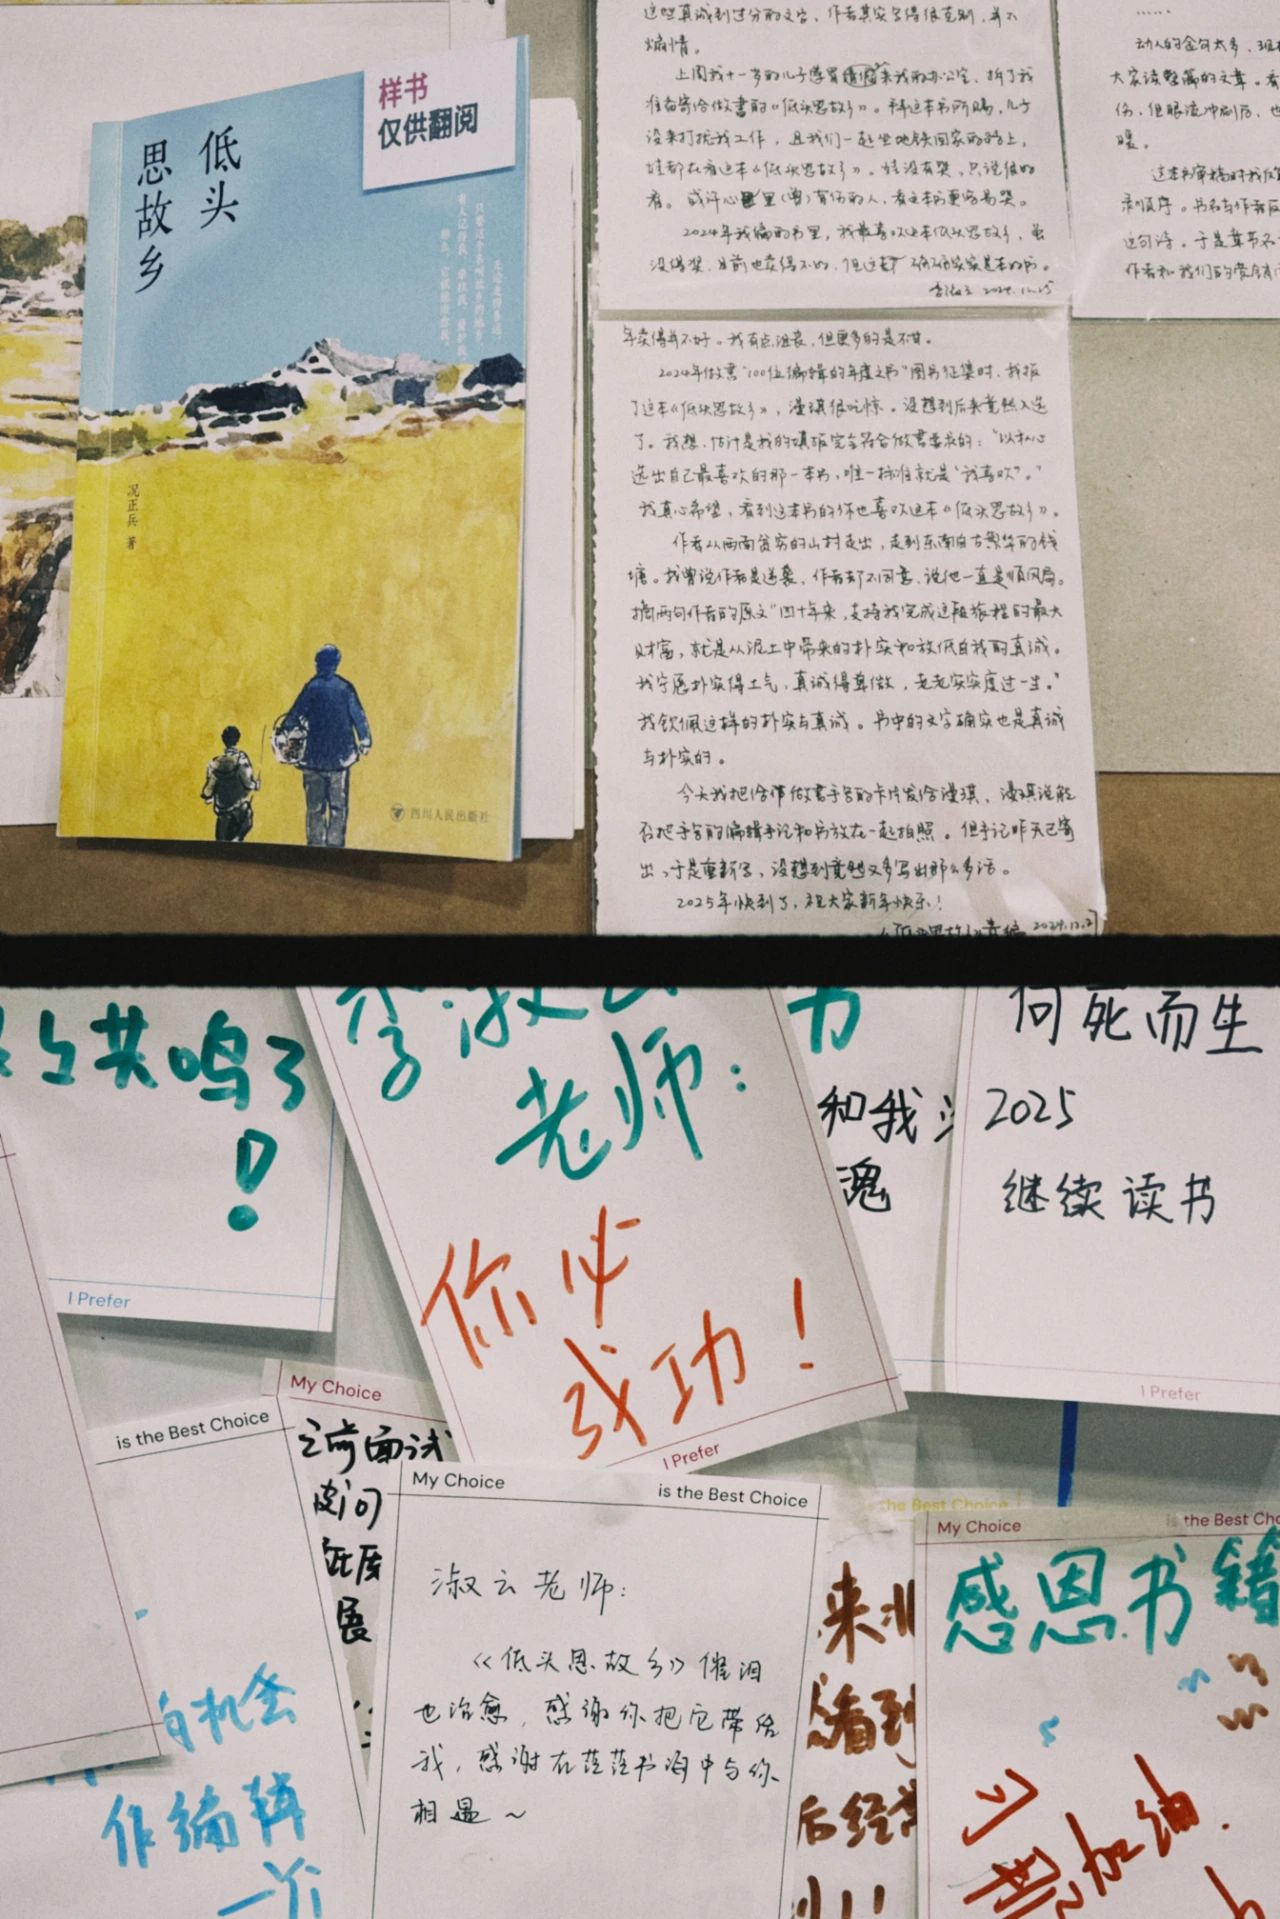 样书
仅供翻阅
低头
思故乡
况正兵 著
四川人民出版社
这些真诚到过分的文字，作者其实写得很克制，并不
煽情。
上周我十一岁的儿子
准备寄给做书的《低头思故乡》。拜这本书所赐，儿子
没来打扰我工作，且我们一起坐地铁回家的路上，
娃都在看这本《低头思故乡》。娃没有哭，只说很好
看。或许心里（曾）有伤的人，看这本书更容易哭。
2024年我编的书里，我最喜欢这本低头思故乡，虽
没得奖，目前也卖得不好，但这都
2024.12.25
……
动人的金句太多，
大家读整篇的文章。看
伤，但眼泪冲刷后，也
暖。
这本书审稿时我
录顺序。书名与作者
这句诗。于是章节不
作者和我们的营销
年卖得并不好。我有点沮丧，但更多的是不甘。
2024年做書“100位编辑的年度之书”图书征集时，我报
了这本《低头思故乡》，漫琪很吃惊。没想到后来竟然入选
了。我想，估计是我的填报完全符合做書要求的：“以私心
选出自己最喜欢的那一本书，唯一标准就是‘我喜欢’。”
我真心希望，看到这本书的你也喜欢这本《低头思故乡》。
作者从西南贫穷的山村走出，走到东南自古繁华的钱
塘。我曾说作者是逆袭，作者却不同意，说他一直是顺风局。
摘两句作者的原文“四十年来，支持我完成这段旅程的最大
财富，就是从泥土中带来的朴实和放低自我的真诚。
我宁愿朴实得土气，真诚得卑微，老老实实度过一生。”
我钦佩这样的朴实与真诚。书中的文字确实也是真诚
与朴实的。
今天我把给伴做書手写的卡片发给漫琪，漫琪说能
否把手写的编辑手记和书放在一起拍照。但手记昨天已寄
出，于是重新写，没想到竟然又多写出那么多话。
2025年快到了，祝大家新年快乐！
《低头思故乡》责编 2024.12.27
共鸣了
！
I Prefer
李淑云
老师：
你必
成功！
I Prefer
书
和我
魂
向死而生
2025
继续读书
I Prefer
is the Best Choice
有机会
作编辑
一个
My Choice
之前面试
展
My Choice
is the Best Choice
淑云老师：
《低头思故乡》催泪
也治愈，感谢你把它带给
我，感谢在茫茫书海中与你
相遇～
the Best Choice
来
看到
后经常
！！
My Choice
the Best Cho
感恩书籍
加油